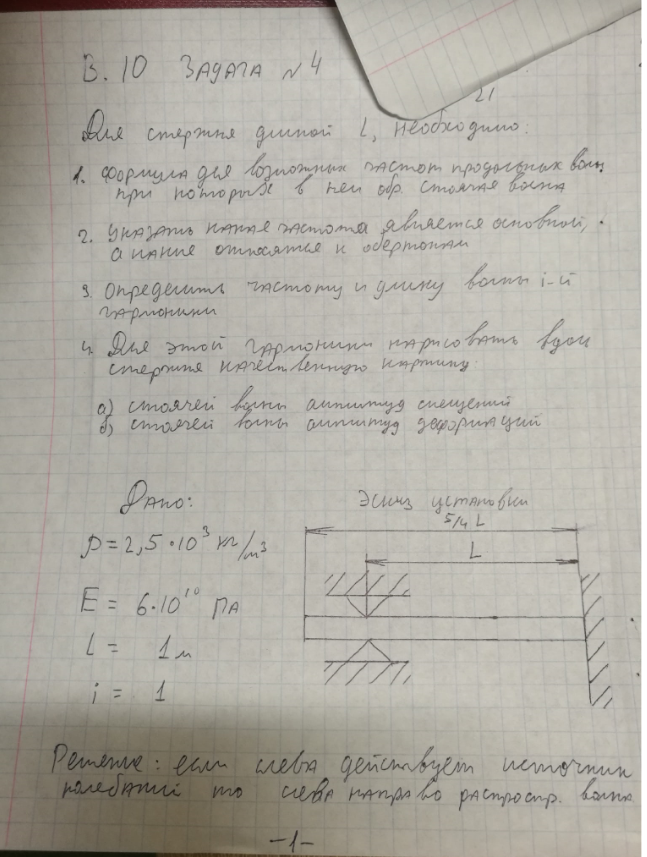 В. 10 Задача №4
21
Для стержня длиной L, необходимо:
1. Формула для возможных частот продольных волн
при которых в нем обр. стоячая волна
2. Указать какая частота является основной,
а какие относятся к обертонам
3. Определить частоту и длину волны i-й
гармоники
4. Для этой гармоники нарисовать вдоль
стержня качественную картину:
а) стоячей волны амплитуд смещений
б) стоячей волны амплитуд деформаций
Дано:
ρ=2,5·10³ кг/м³
E = 6·10¹⁰ Па
L = 1м
i = 1
Эскиз установки
5/4 L
L
Решение: если слева действует источник
колебаний то слева направо распростр. волна
-1-